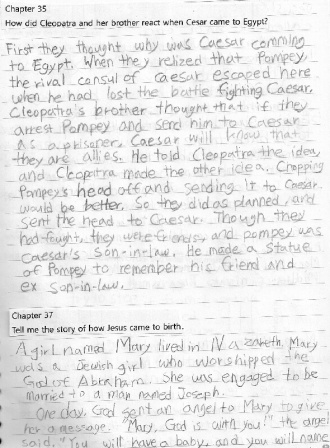 Chapter 35
How did Cleopatra and her brother react when Cesar came to Egypt?
First they thought why was Caesar comming
to Egypt. When they relized that Pompey,
the rival consul of Caesar escaped here
when he had lost the battle fighting Caesar.
Cleopatra's brother thought that if they
arrest Pompey and send him to Caesar
as a prisoner, Caesar will know that
they are allies. He told Cleopatra the idea,
and Cleopatra made the other idea. Chopping
Pompey's head off and sending it to Caesar
would be better. So they did as planned, and
sent the head to Caesar. Though they
had fought, they were friends, and pompey was
Caesar's Son-in-law. He made a Statue
of Pompey to remember his friend and
ex son-in-law.
Chapter 37
Tell me the story of how Jesus came to birth.
A girl named Mary lived in Nazareth. Mary
was a Jewish girl who worshipped the
God of Abraham. She was engaged to be
married to a man named Joseph.
One day, God sent an angel to Mary to give
her a message. "Mary, God is with you!" the angel
said. "You will have a baby, and you will name